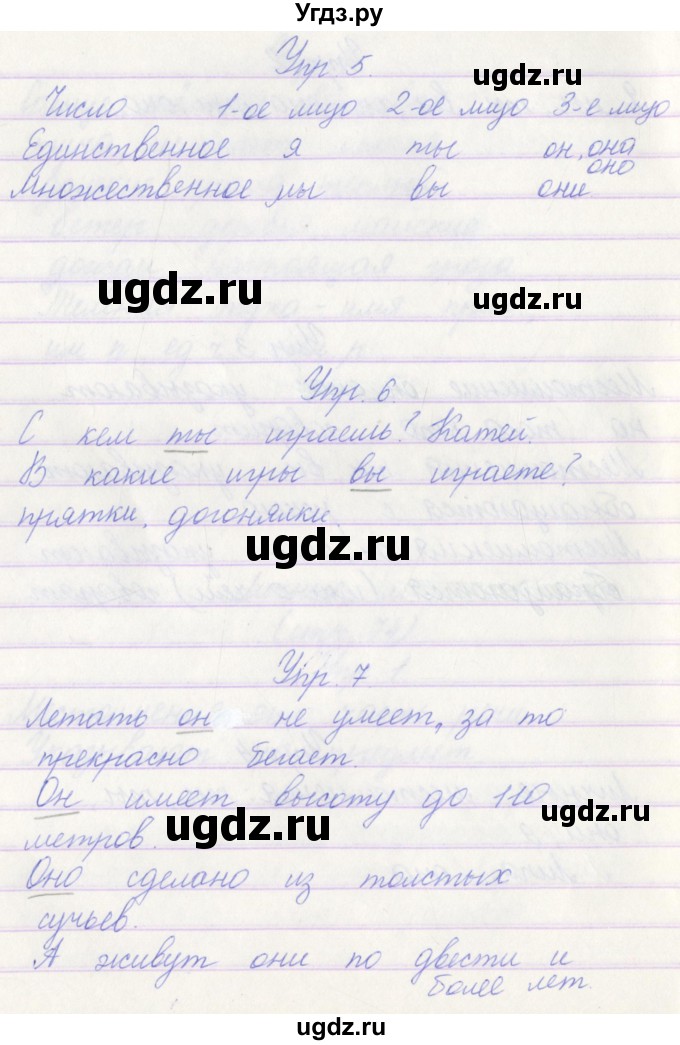 Угдз.ру
Упр. 5.
ugdz.ru
Число 1-ое лицо 2-ое лицо 3-е лицо
Единственное я ты он, она
оно
Множественное мы вы они
ugdz.ru
ugdz.ru
Упр. 6.
С кем ты играешь? Катей.
В какие игры вы играете?
прятки, догонялки
ugdz.ru
ugdz.ru
Упр. 7.
Летать он не умеет, за то
прекрасно бегает.
Он имеет высоту до 110
метров.
ugdz.ru
ugdz.ru
Оно сделано из толстых
сучьев.
А живут они по двести и
более лет.
ugdz.ru